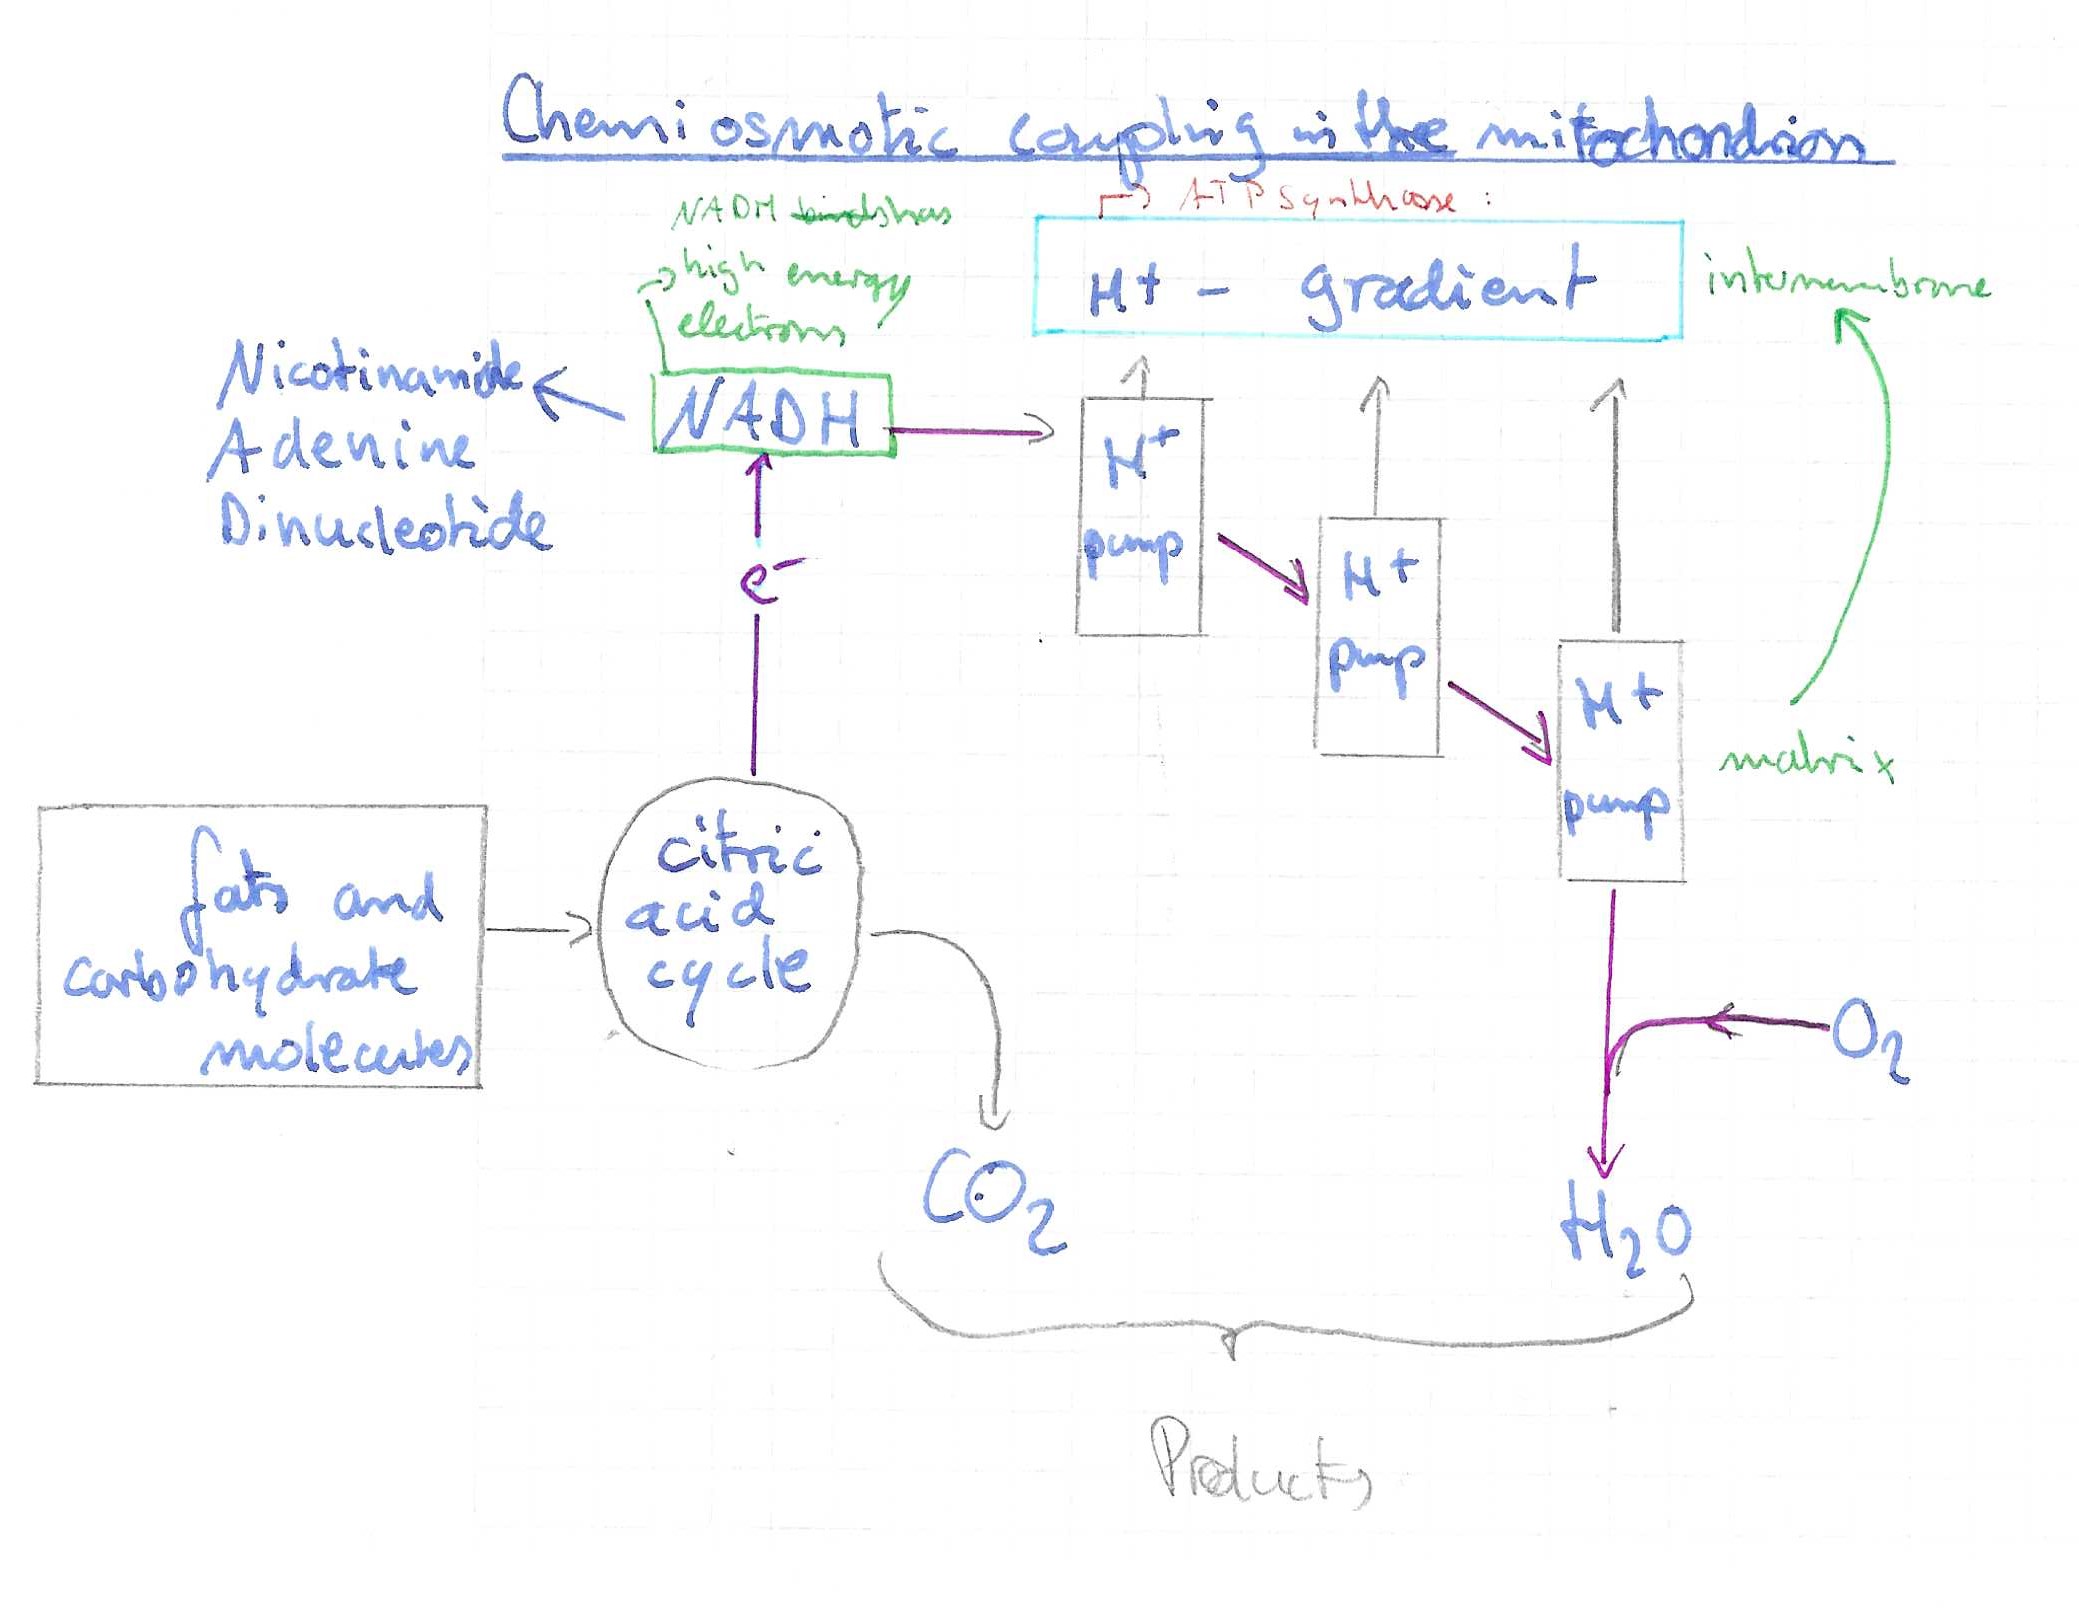 Chemiosmotic coupling in the mitochondrion
NADH binds has
high energy
electrons
ATP Synthase :
H+ - gradient
intermembrane
Nicotinamide
Adenine
Dinucleotide
NADH
e-
H+
pump
H+
pump
H+
pump
matrix
fats and
carbohydrate
molecules
citric
acid
cycle
O2
CO2
H2O
Products